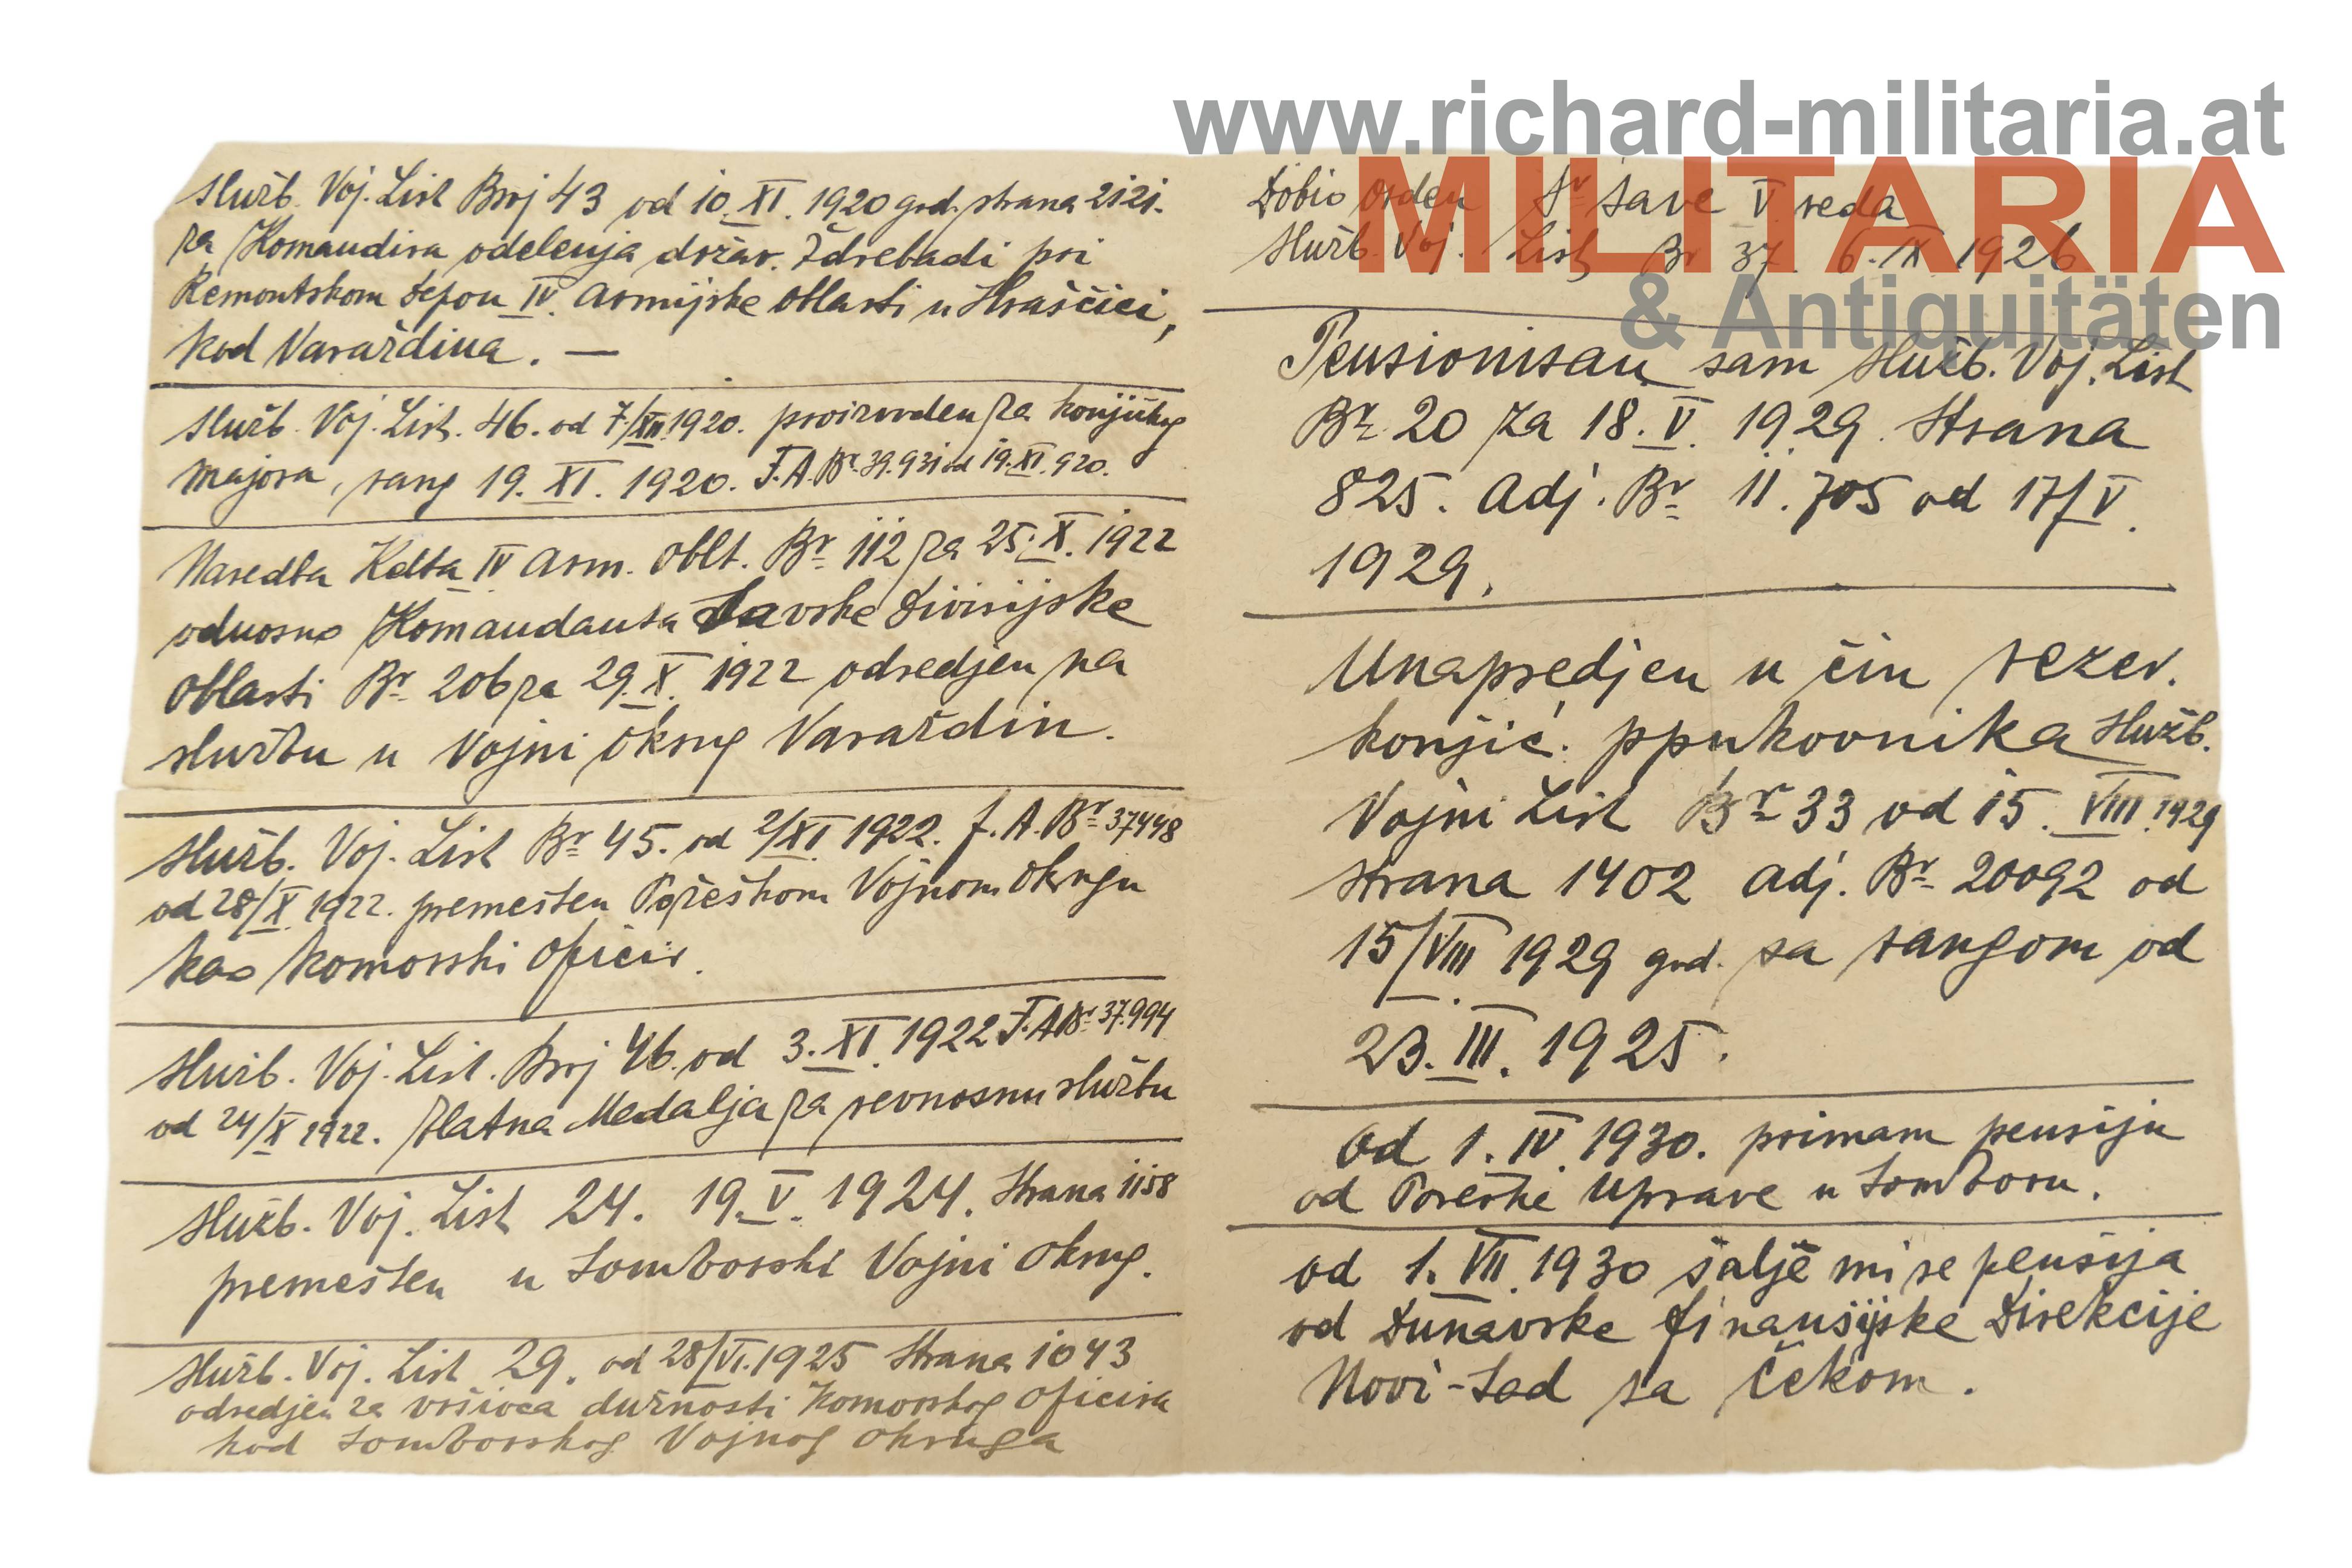 www.richard-militaria.at
MILITARIA
& Antiquitäten
Služb. Voj. List Broj 43 od 10. XI. 1920 god. strana 2121.
za Komandira odelenja držav. Ždrebadi pri
Remontskom Depou IV. Armijske Oblasti u Hraščici,
kod Varaždina. —
Služb. Voj. List. 46. od 7/XII 1920. proizveden za konjičkog
majora, rang 19. XI. 1920. F.A. Br. 39.931 od 19. XI. 920.
Naredba Kdta IV Arm. Oblt. Br. 112 za 25. X. 1922
odnosno Komandanta Savske Divizijske
Oblasti Br. 206 za 29. X. 1922 odredjen na
službu u Vojni Okrug Varaždin.
Služb. Voj. List Br. 45. od 2/XI 1922. F. A. Br. 37448
od 28/X 1922. premešten Požeškom Vojnom Okrugu
kao komorski oficir.
Služb. Voj. List. Broj 46. od 3. XI. 1922 F. A. Br. 37.994
od 24/X 1922. Zlatna Medalja za revnosnu službu
Služb. Voj. List 24. 19. V. 1924. Strana 1158
premešten u Somborski Vojni Okrug.
Služb. Voj. List 29. od 28/VI. 1925 Strana 1043
odredjen za vršioca dužnosti Komorskog Oficira
kod Somborskog Vojnog Okruga
Dobio Orden Sv. Save V. reda
Služb. Voj. List Br 37. 6. IX 1926
Pensionisan sam Služb. Voj. List
Br. 20 za 18. V. 1929. Strana
825. Adj. Br. 11.705 od 17/V.
1929.
Unapredjen u čin rezer.
konjič. ppukovnika Služb.
Vojni List Br. 33 od 15. VIII. 1929
strana 1402 Adj. Br. 20092 od
15/VIII 1929 god. sa rangom od
23. III. 1925.
Od 1. IV. 1930. primam pensiju
od Poreske Uprave u Somboru.
od 1. VII. 1930 šalje mi se pensija
od Dunavske finansijske Direkcije
Novi-Sad sa Čekom.